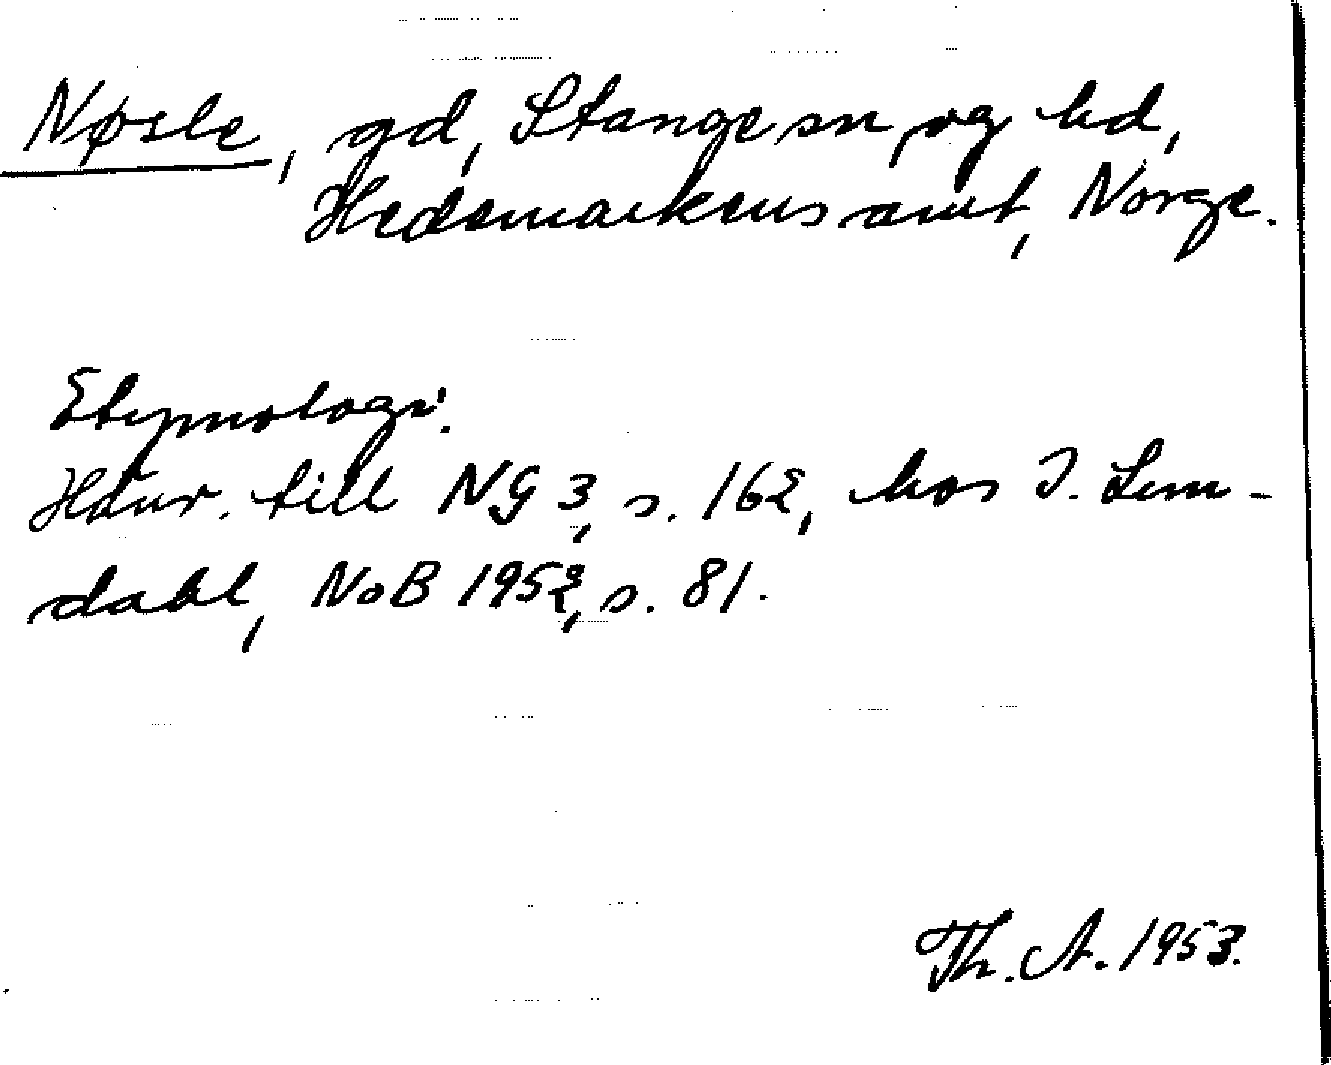 Nøsle, gd, Stange sn og hd,
Hedemarkens amt, Norge.
Etymologi.
Hänv. till NG 3, s. 162, hos I. Lin-
dahl, NoB 1952, s. 81.
Th. A. 1953.